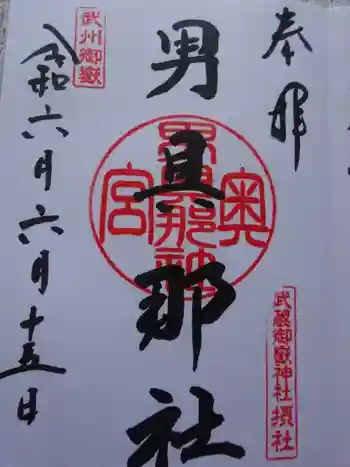 奉拝
武蔵御嶽神社 摂社
男具那社
奥
男具那神社
宮
武州御嶽
令和六月六月十五日